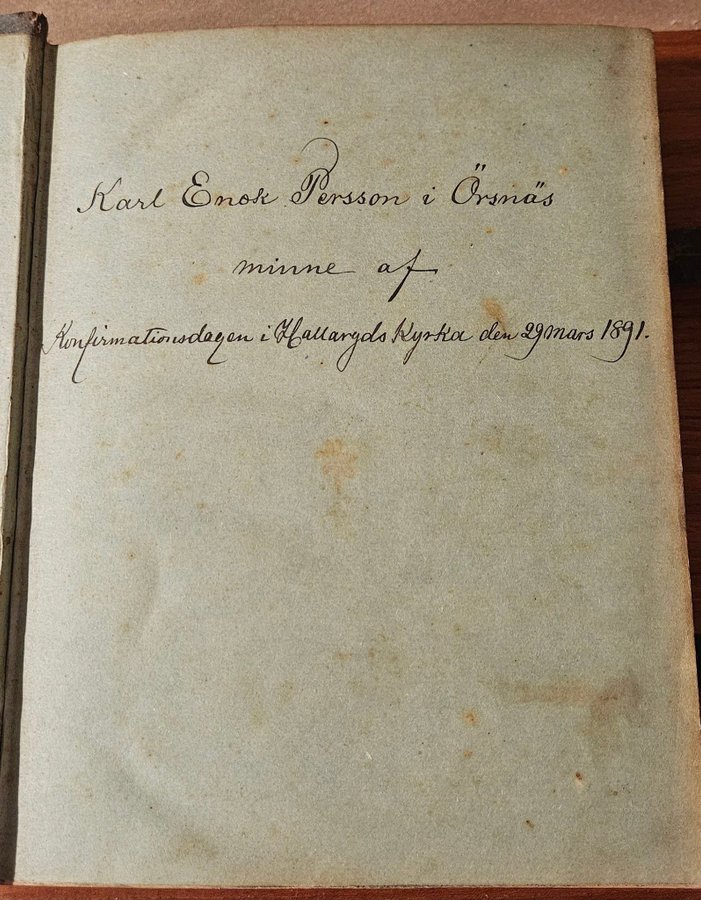 Karl Enok Persson i Örsnäs
minne af
Konfirmationsdagen i Hallaryds Kyrka den 29 mars 1891.